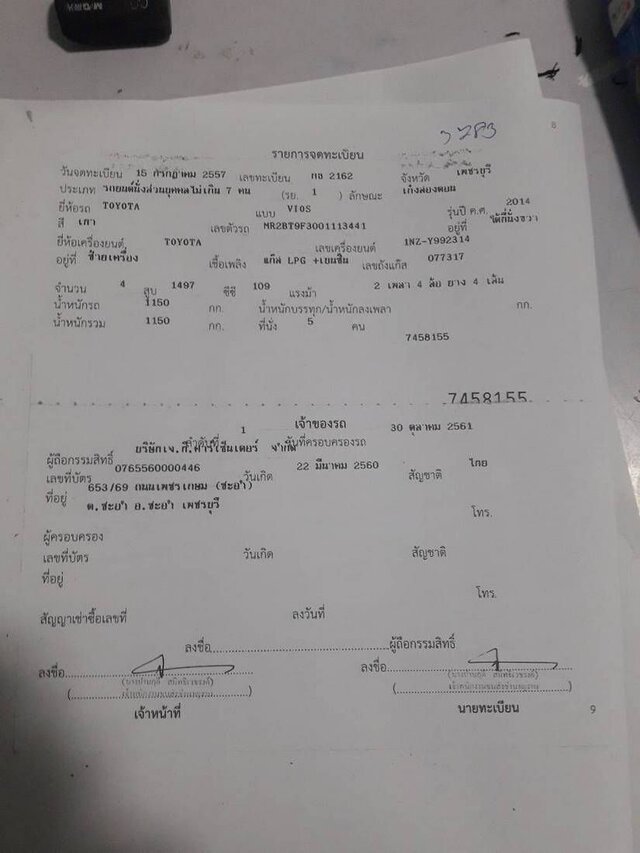 3283
8
รายการจดทะเบียน
วันจดทะเบียน 15 กรกฎาคม 2557 เลขทะเบียน กอ 2162 จังหวัด เพชรบุรี
ประเภท รถยนต์นั่งส่วนบุคคลไม่เกิน 7 คน (รย. 1 ) ลักษณะ เก๋งสองตอน
ยี่ห้อรถ TOYOTA แบบ VIOS รุ่นปี ค.ศ. 2014
สี เทา เลขตัวรถ MR2BT9F3001113441 อยู่ที่ ใต้ที่นั่งขวา
ยี่ห้อเครื่องยนต์ TOYOTA เลขเครื่องยนต์ 1NZ-Y992314
อยู่ที่ ซ้ายเครื่อง เชื้อเพลิง แก๊ส LPG +เบนซิน เลขถังแก๊ส 077317
จำนวน 4 สูบ 1497 ซีซี 109 แรงม้า 2 เพลา 4 ล้อ ยาง 4 เส้น
น้ำหนักรถ 1150 กก. น้ำหนักบรรทุก/น้ำหนักลงเพลา กก.
น้ำหนักรวม 1150 กก. ที่นั่ง 5 คน
7458155
7458155
เจ้าของรถ
1 วันที่ครอบครองรถ 30 ตุลาคม 2561
ผู้ถือกรรมสิทธิ์ บริษัทเจ.ที.คาร์เซ็นเตอร์ จำกัด
เลขที่บัตร 0765560000446 วันเกิด 22 มีนาคม 2560 สัญชาติ ไทย
ที่อยู่ 653/69 ถนนเพชรเกษม (ชะอำ)
ต.ชะอำ อ.ชะอำ เพชรบุรี
โทร.
ผู้ครอบครอง
เลขที่บัตร วันเกิด สัญชาติ
ที่อยู่
โทร.
สัญญาเช่าซื้อเลขที่ ลงวันที่
ลงชื่อ ผู้ถือกรรมสิทธิ์
ลงชื่อ ลงชื่อ
เจ้าหน้าที่ นายทะเบียน
9